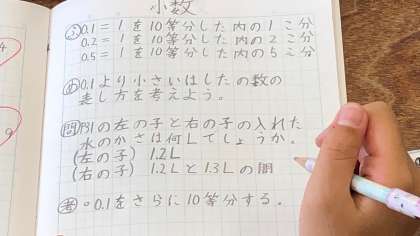 小数
ふ 0.1=1を10等分した内の1こ分
0.2=1を10等分した内の2こ分
0.5=1を10等分した内の5こ分
め 0.1より小さいはしたの数の
表し方を考えよう。
問 P.81の左の子と右の子の入れた
水のかさは何Lでしょうか。
(左の子) 1.2L
(右の子) 1.2Lと1.3Lの間
考 ・0.1をさらに10等分する。
4
9